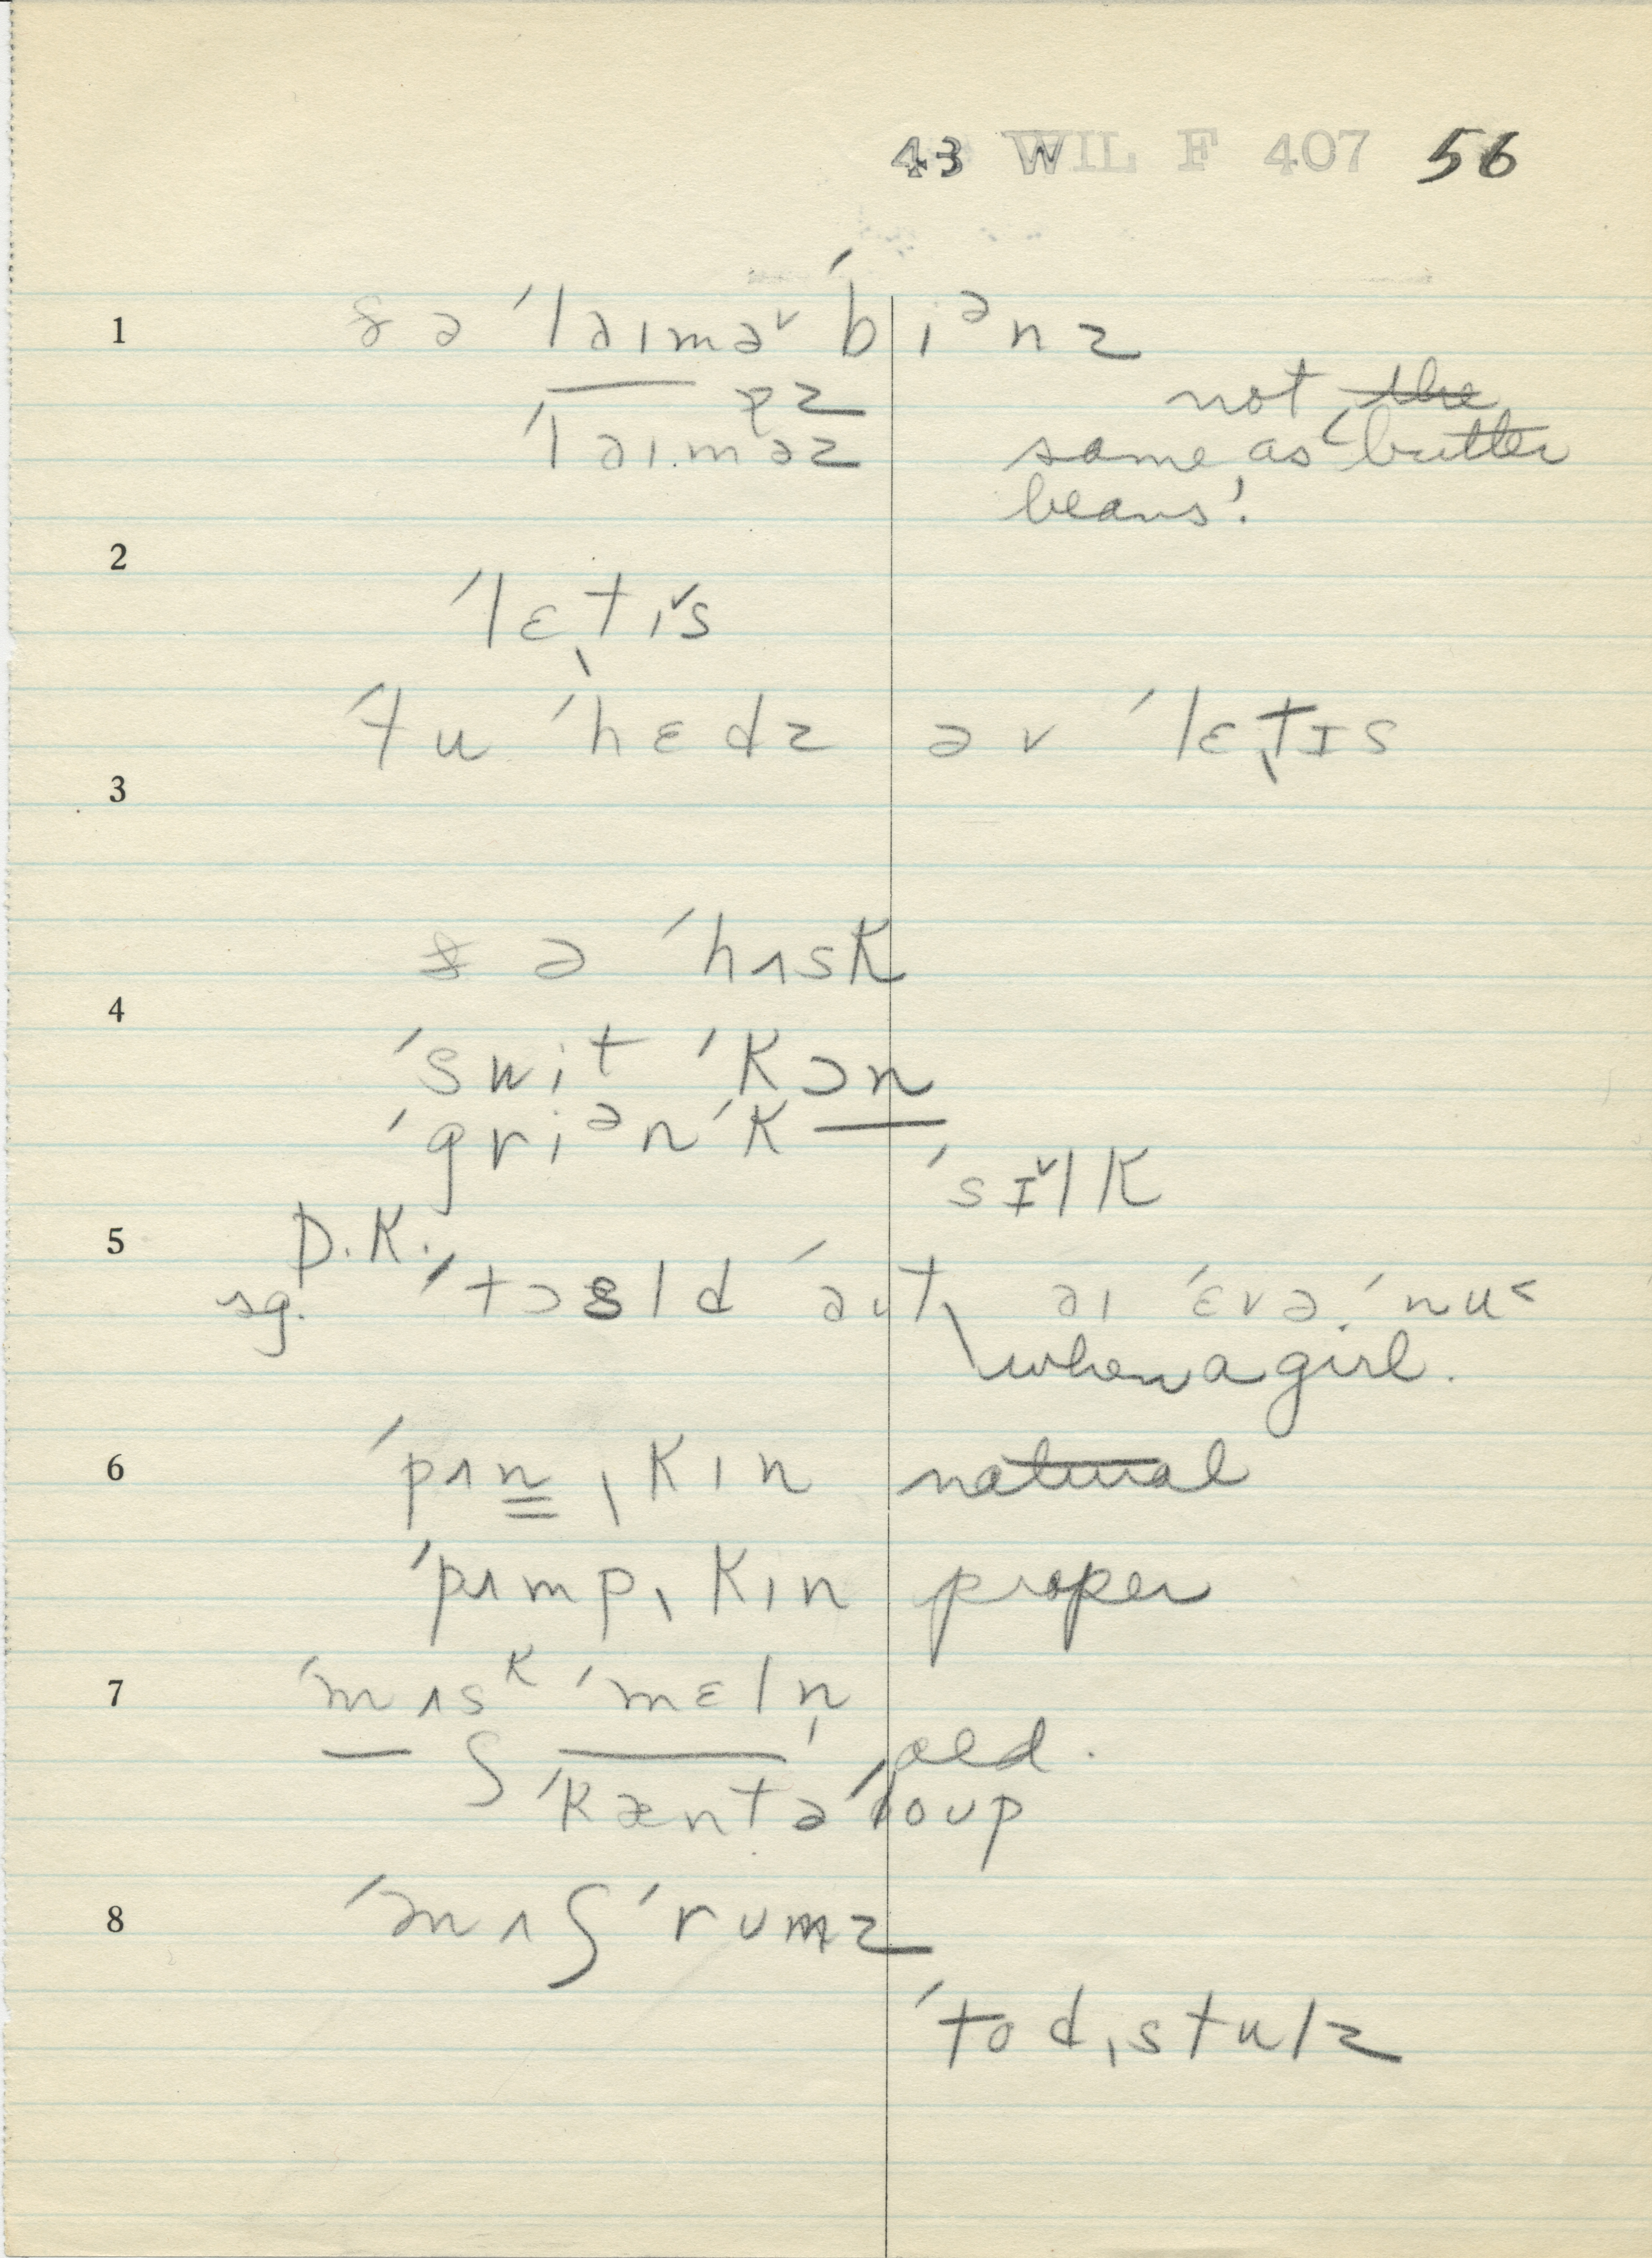 43 WIL F 407 56
1 ð ə ˈlaɪməˇ ˈbiᵊnz
pz
ˈlaɪməz not the
same as ‘butter
beans’.
2
ˈlɛt̬ɪˇs
3 ˈtu ˈhɛdz əv ˈlɛt̬ɪs
ð ə ˈhʌsk
4
ˈswit ˈkɔn
ˈgriᵊn ˈk—
ˈsɪˇlk
5 D.K.
sg. ˈtɔsld ˈaʊt, aɪ ˈɛvə ˈnu˂
when a girl.
6 ˈpʌn̳ˌkɪn natural
ˈpʌmpˌkɪn proper
7 ˈmʌsᵏ ˈmɛln̩
— ʃ — old.
ˈkæntəˈloup
8 ˈmʌʃˈrumz
ˈtodˌstulz